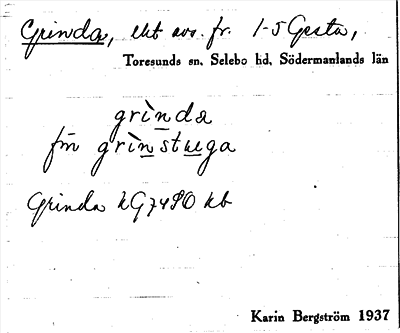 Grinda, lht avs. fr. 1-5 Gesta,
Toresunds sn, Selebo hd, Södermanlands län
grìnda
fm grìnstuga
Grinda kG7490 kb
Karin Bergström 1937